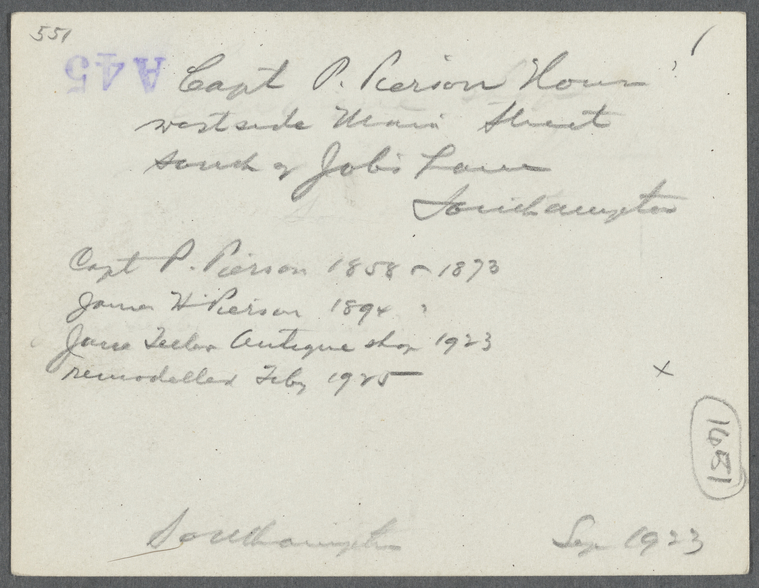 551
A45
Capt P. Pierson House
west side Main Street
south of Job's Lane
Southampton
Capt P. Pierson 1858 - 1873
James H Pierson 1894
Jane Teller Antique shop 1923
remodelled Feby 1925
x
1651
Southampton Sep 1923